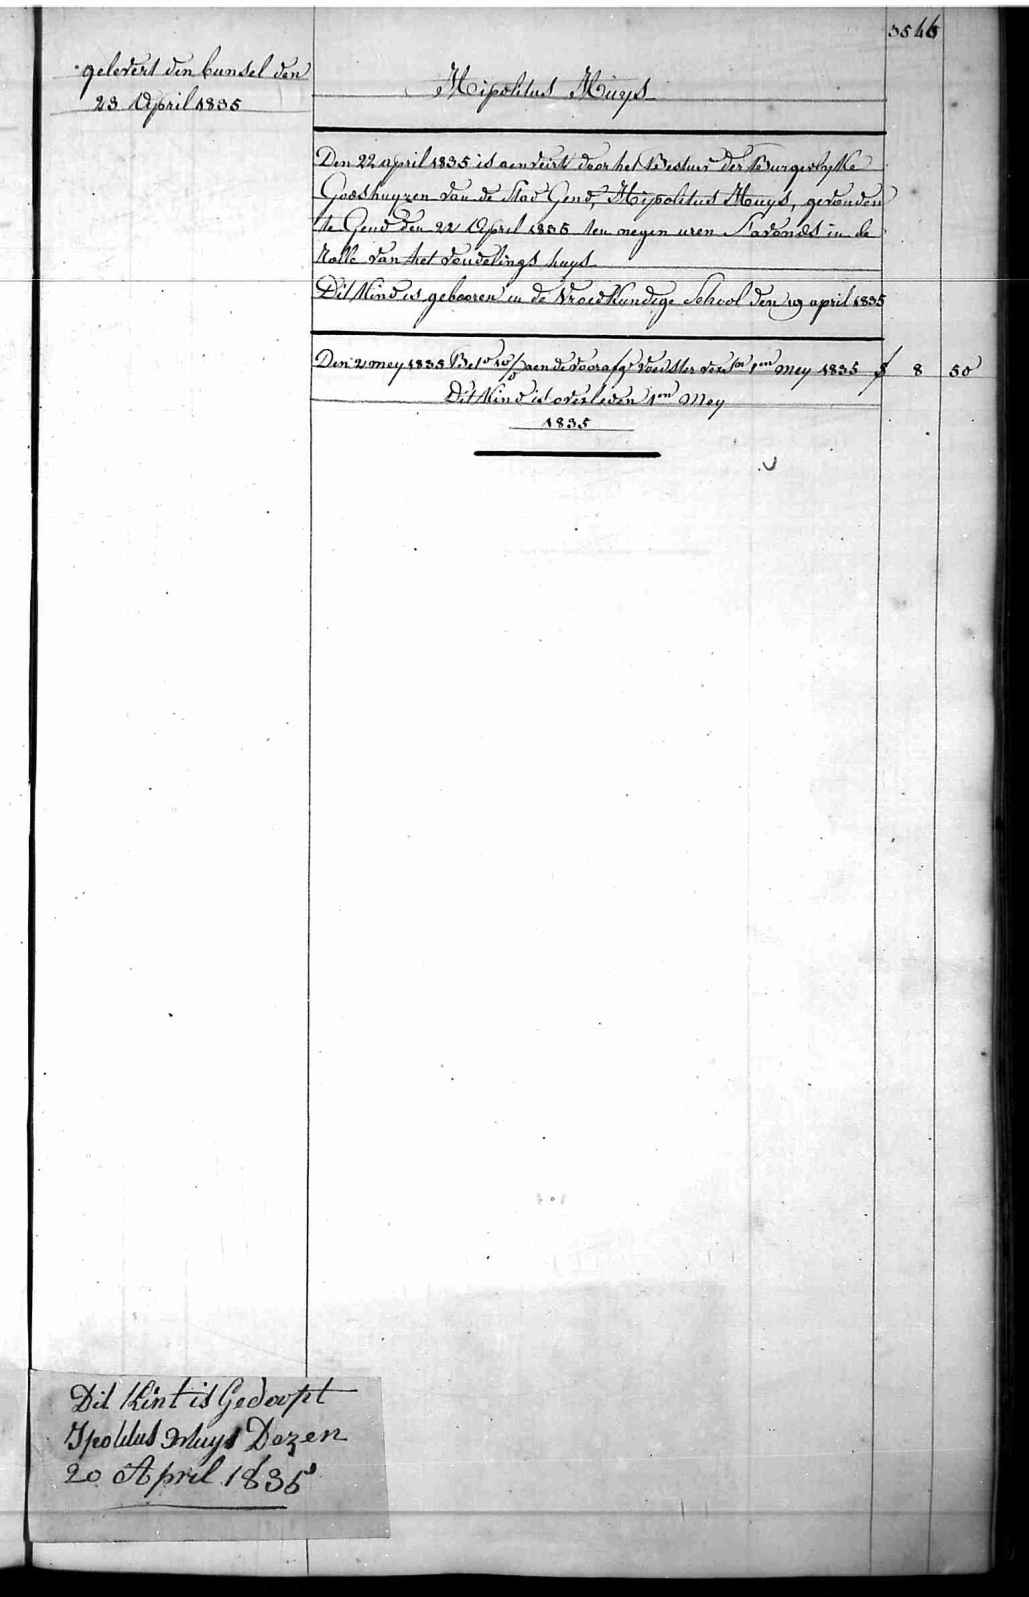 3546
gelevert den bunsel den
23 April 1835
Hipolitus Muys
Den 22 april 1835 is aenveirt door het Bestuer der Burgerlykke
Godshuyzen van de Stad Gend, Hipolitus Muys, gevonden
te Gend den 22 April 1835 ten negen uren s'avonds in de
rolle van het vondelings huys
Dit Kind is gebooren in de Vroedkundige School den 19 april 1835
Den 2 mey 1835 aen de voorafge voedster 1en mey 1835 f 8 50
Dit Kind is overleden 1en Mey
1835
Dit Kint is Gedoopt
Ipolitus Muys Dezen
20 April 1835